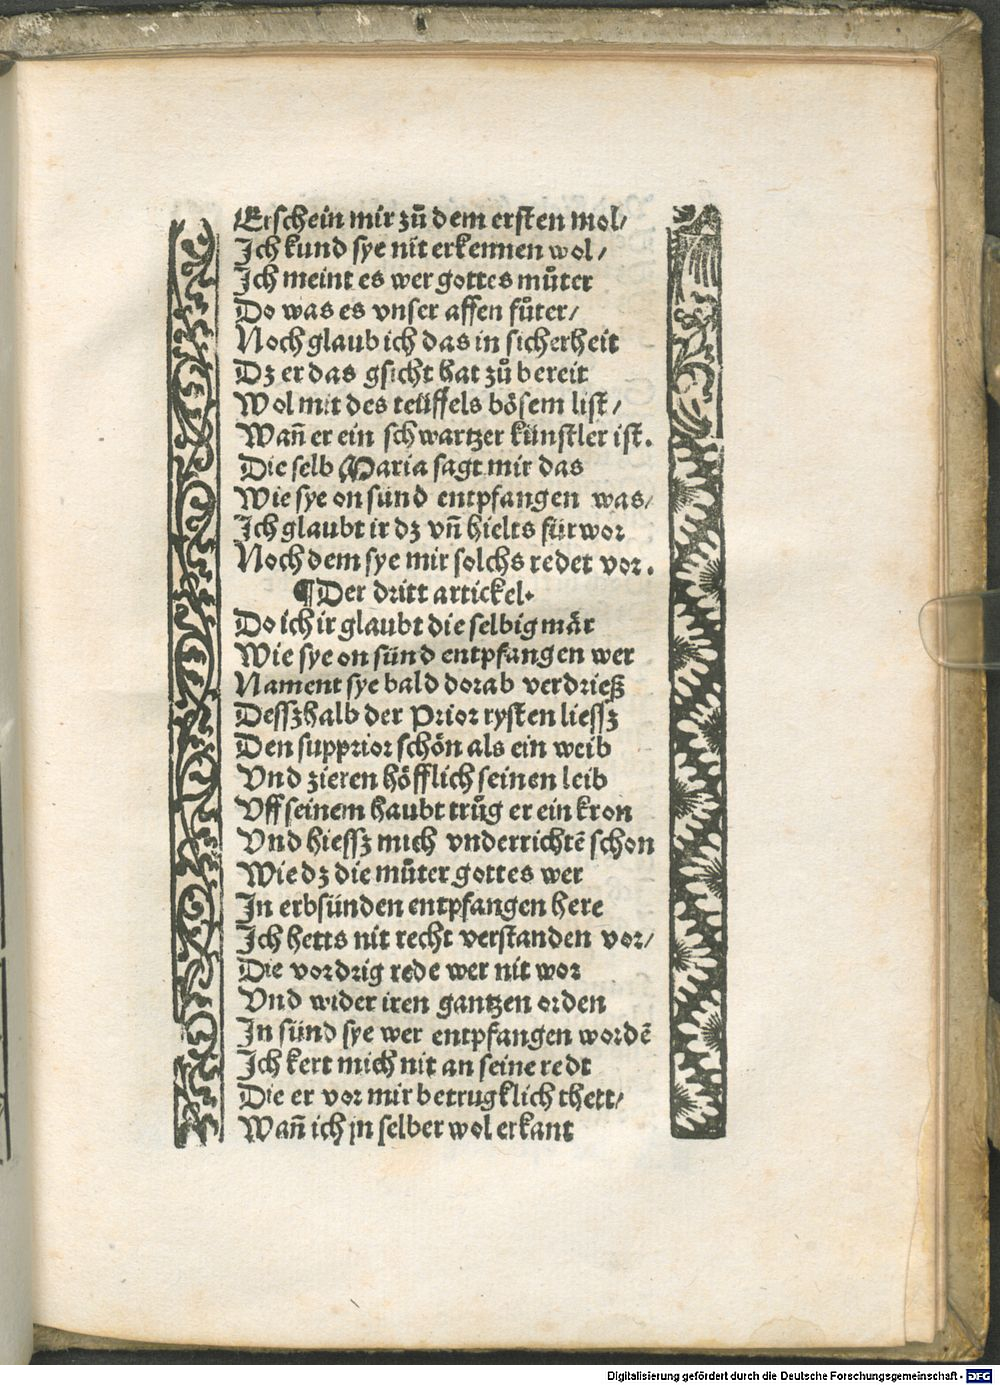 Erschein mir zů dem ersten mol/
Ich kund sye nit erkennen wol/
Ich meint es wer gottes můter
Do was es vnser affen fůter/
Noch glaub ich das in sicherheit
Dz er das gsicht hat zů bereit
Wol mit des teüffels bösem list/
Wañ er ein schwartzer künstler ist.
Die selb Maria sagt mir das
Wie sye on sünd entpfangen was/
Ich glaubt ir dz vñ hielts fürwor
Noch dem sye mir solchs redet vor.
¶Der dritt artickel.
Do ich ir glaubt die selbig mär
Wie sye on sünd entpfangen wer
Nament sye bald dorab verdrieß
Desszhalb der Prior rysten liessz
Den supprior schön als ein weib
Vnd zieren höfflich seinen leib
Vff seinem haubt trůg er ein kron
Vnd hiessz mich vnderrichtē schon
Wie dz die můter gottes wer
In erbsünden entpfangen here
Ich hetts nit recht verstanden vor/
Die vordrig rede wer nit wor
Vnd wider iren gantzen orden
In sünd sye wer entpfangen wordē
Ich kert mich nit an seine redt
Die er vor mir betrugklich thett/
Wañ ich jn selber wol erkant
Digitalisierung gefördert durch die Deutsche Forschungsgemeinschaft - DFG